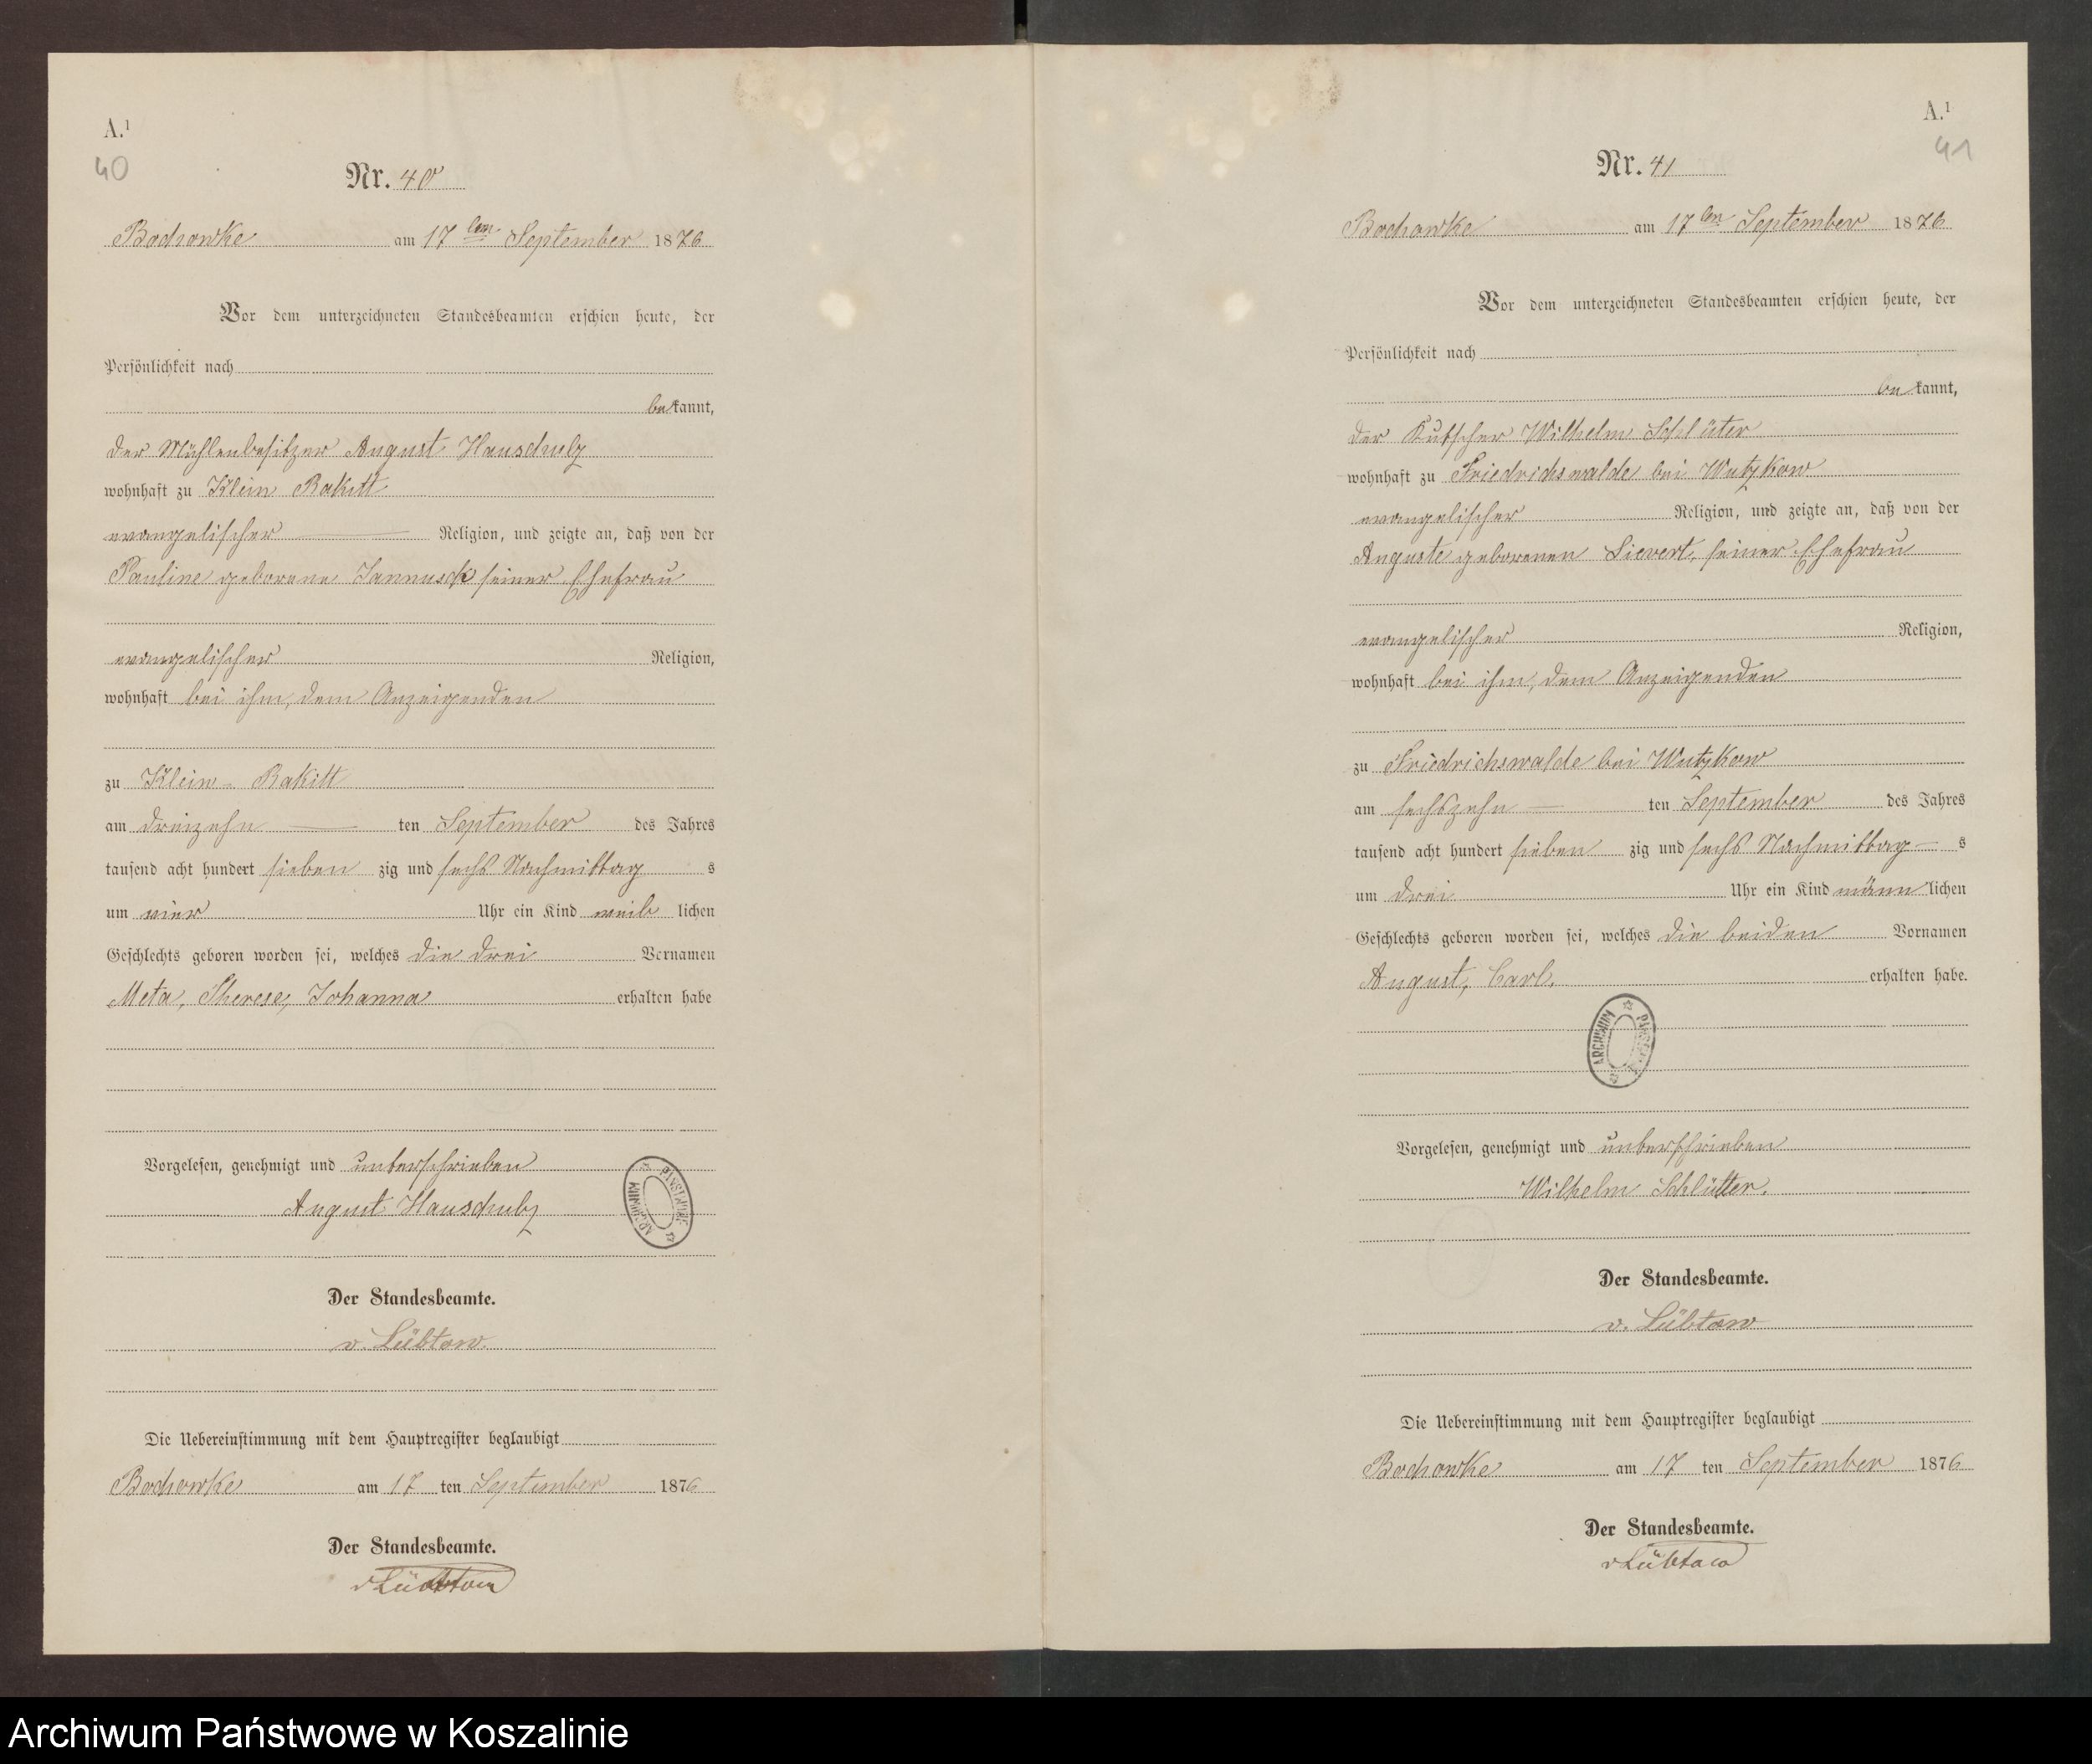 A.¹
40
Nr. 40
Bochowke am 17ten September 1876
Vor dem unterzeichneten Standesbeamten erschien heute, der
Persönlichkeit nach
bekannt,
der Mühlenbesitzer August Hauschulz
wohnhaft zu Klein Rakitt
evangelischer Religion, und zeigte an, daß von der
Pauline geborene Jannusch seiner Ehefrau
evangelischer Religion,
wohnhaft bei ihm, dem Anzeigenden
zu Klein-Rakitt
am dreizehn ten September des Jahres
tausend acht hundert sieben zig und sechs Nachmittag s
um vier Uhr ein Kind weib lichen
Geschlechts geboren worden sei, welches die drei Vornamen
Meta, Therese, Johanna erhalten habe
Vorgelesen, genehmigt und unterschrieben
August Hauschulz
ARCHIWUM PAŃSTWOWE
Der Standesbeamte.
v. Lübtow
Die Uebereinstimmung mit dem Hauptregister beglaubigt
Bochowke am 17 ten September 1876
Der Standesbeamte.
vLübtow
A.¹
41
Nr. 41
Bochowke am 17ten September 1876
Vor dem unterzeichneten Standesbeamten erschien heute, der
Persönlichkeit nach
bekannt,
der Kutscher Wilhelm Schlüter
wohnhaft zu Friedrichswalde bei Wutzkow
evangelischer Religion, und zeigte an, daß von der
Auguste geborenen Sievert, seiner Ehefrau
evangelischer Religion,
wohnhaft bei ihm, dem Anzeigenden
zu Friedrichswalde bei Wutzkow
am sechszehn ten September des Jahres
tausend acht hundert sieben zig und sechs Nachmittag s
um drei Uhr ein Kind männ lichen
Geschlechts geboren worden sei, welches die beiden Vornamen
August, Carl. erhalten habe.
ARCHIWUM
Vorgelesen, genehmigt und unterschrieben
Wilhelm Schlütter.
Der Standesbeamte.
v. Lübtow
Die Uebereinstimmung mit dem Hauptregister beglaubigt
Bochowke am 17 ten September 1876
Der Standesbeamte.
vLübtow
Archiwum Państwowe w Koszalinie